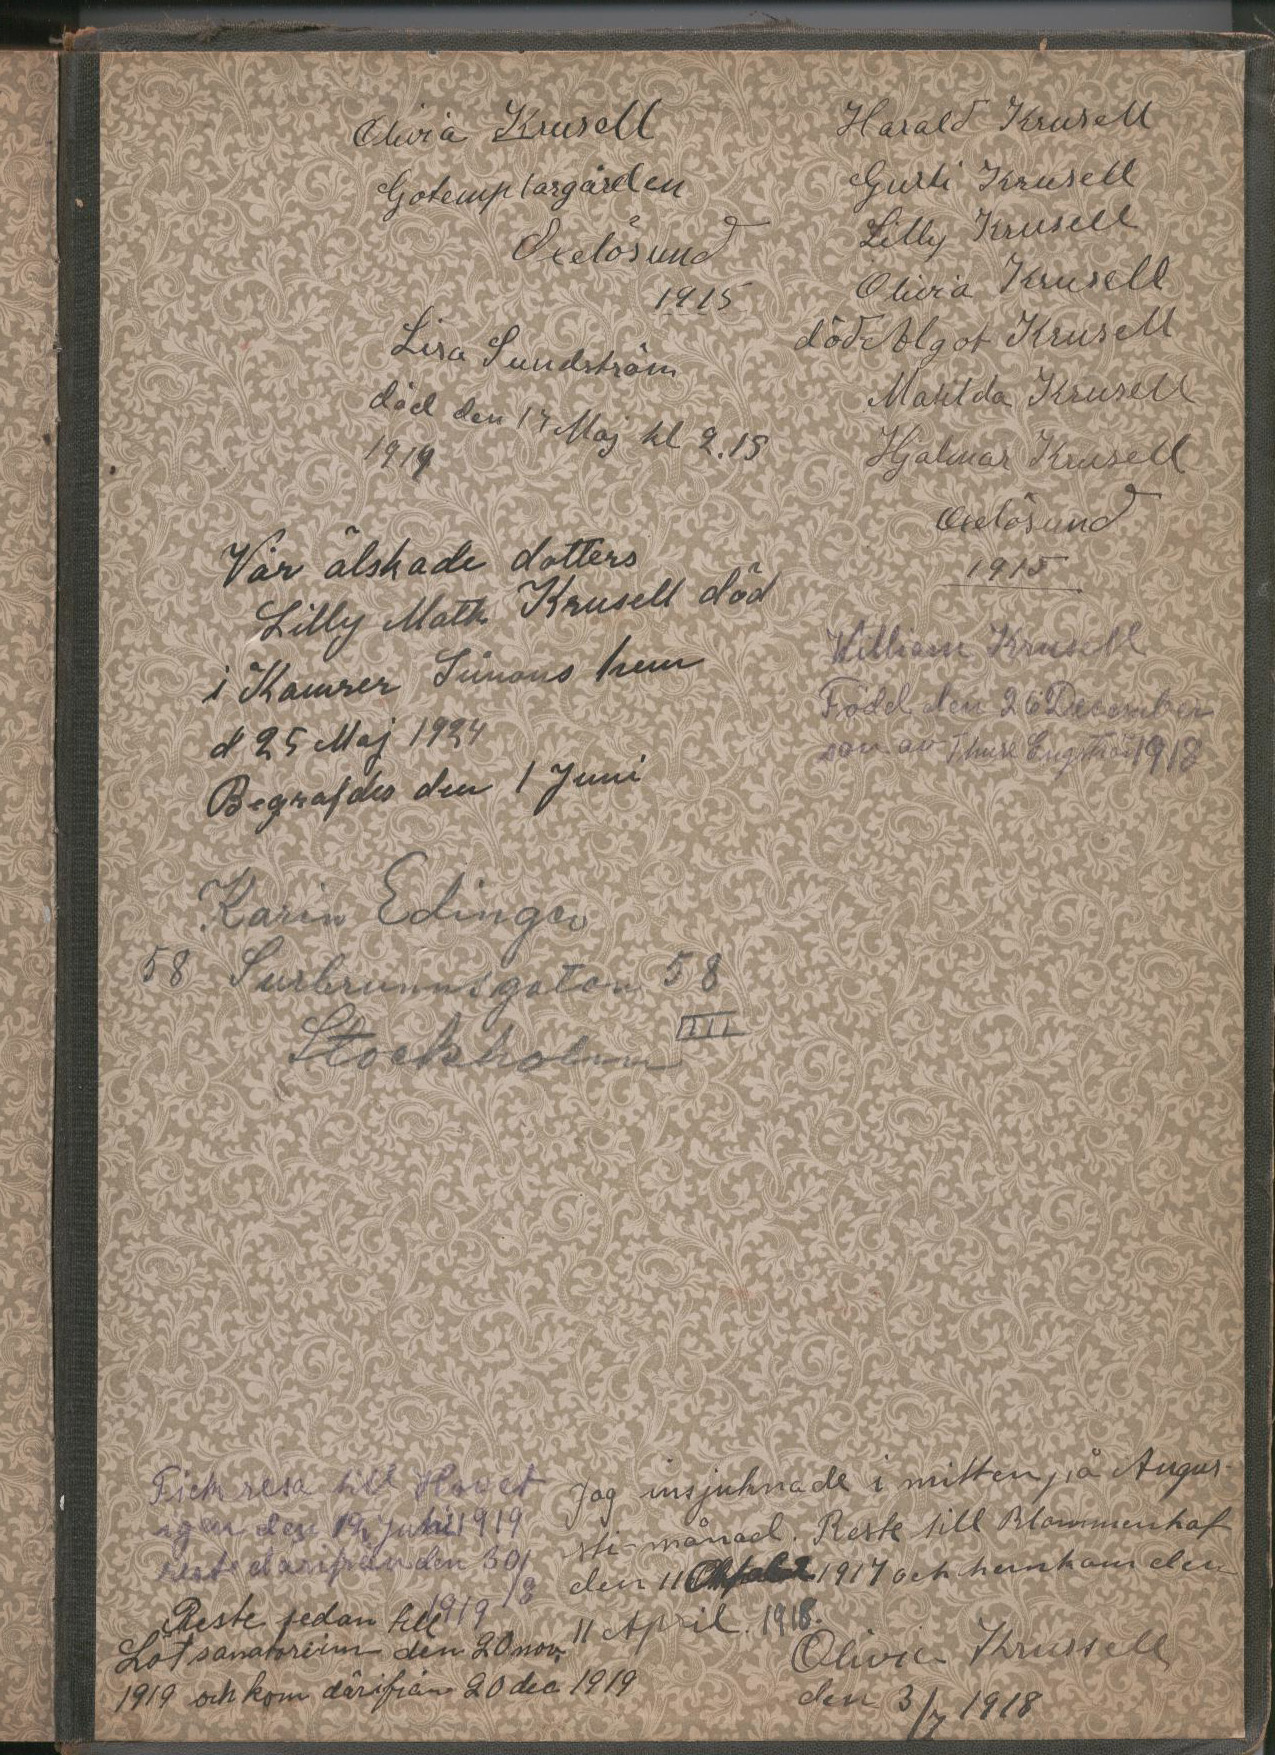 Olivia Krusell
Gotemplargården
Oxelösund
1915
Lisa Sundström
död den 17 Maj kl 2.15
1919
Harald Krusell
Gurli Krusell
Lilly Krusell
Olivia Krusell
död Algot Krusell
Matilda Krusell
Hjalmar Krusell
Oxelösund
1915
Vår älskade dotters
Lilly Math Krusell död
i Kamrer Simons hem
d 25 Maj 1924
Begrafdes den 1 Juni
William Krusell
Född den 26 December
son av Thure Engström 1918
Karin Edinger
58 Surbrunnsgatan 58
III
Stockholm
Fick resa till Hovet
igen den 19 juli 1919
reste därifrån den 30/8
1919
Reste sedan till
Löt sanatorium den 20 nov
1919 och kom därifrån 20 dec 1919
Jag insjuknade i mitten på Augus-
ti-månad. Reste till Blommenhof
den 11 1917 och hemkom den
11 April. 1918.
Olivia Krussell
den 3/7 1918